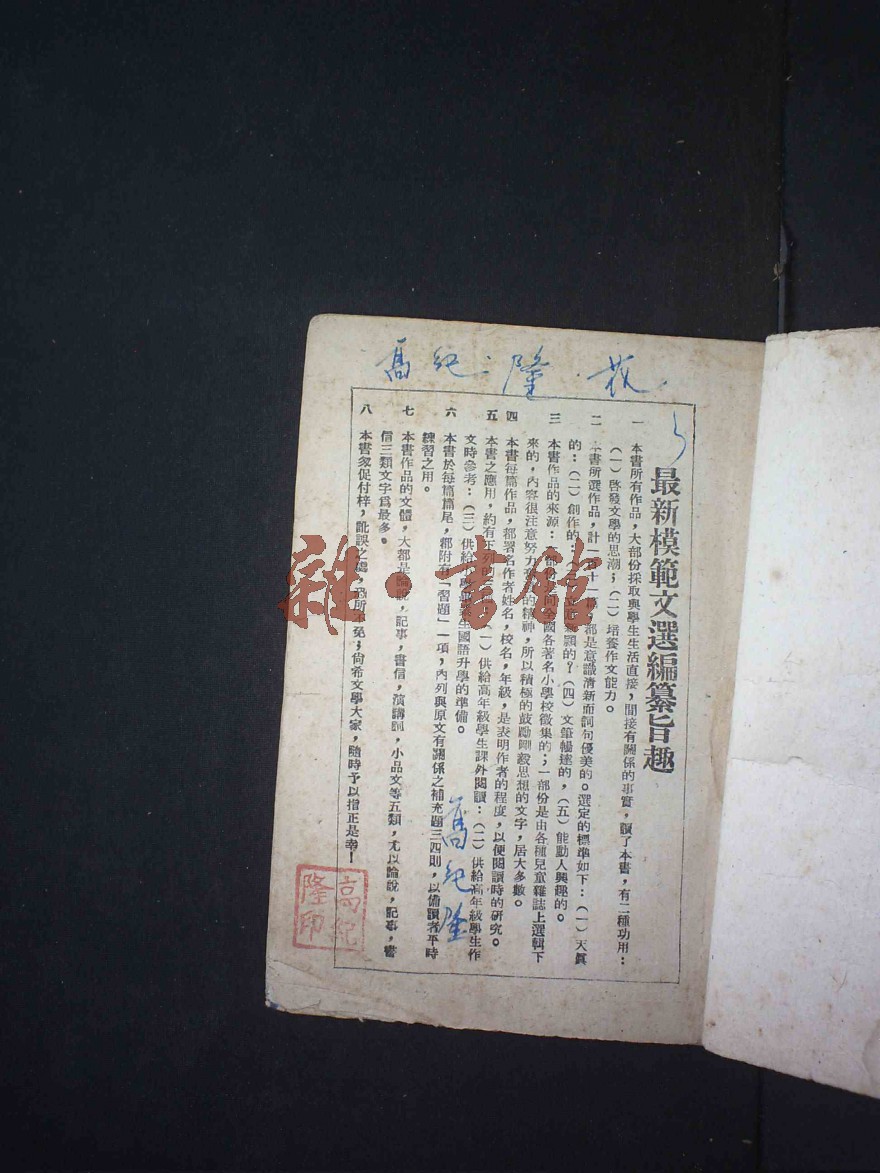 高紀隆
最新模範文選編纂旨趣
一 本書所有作品，大部份採取與學生生活直接，間接有關係的事實，讀了本書，有二種功用：
（一）啓發文學的思潮；（二）培養作文能力。
二 本書所選作品，計一百十一篇，都是意識清新而詞句優美的。選定的標準如下：（一）天眞
的：（二）創作的：的？（四）文筆暢達的，（五）能動人興趣的。
三 本書作品的來源：一部份是向全國各著名小學校徵集的；一部份是由各種兒童雜誌上選輯下
來的，內容很注意努力的精神，所以積極的鼓勵剛毅思想的文字，居大多數。
四 本書每篇作品，都署名作者姓名，校名，年級，是表明作者的程度，以便閱讀時的研究。
五 本書之應用，約有下列的（一）供給高年級學生課外閱讀：（二）供給高年級學生作
文時參考：（三）供給學生國語升學的準備。
六 本書於每篇篇尾，都附有「習題」一項，內列與原文有關係之補充題三四則，以備讀者平時
練習之用。
七 本書作品的文體，大都是論說，記事，書信，演講詞，小品文等五類，尤以論說，記事，書
信三類文字爲最多。
八 本書匆促付梓，訛誤之處，在所不免；尙希文學大家，隨時予以指正是幸！
高紀隆
高紀隆印
雜·書館